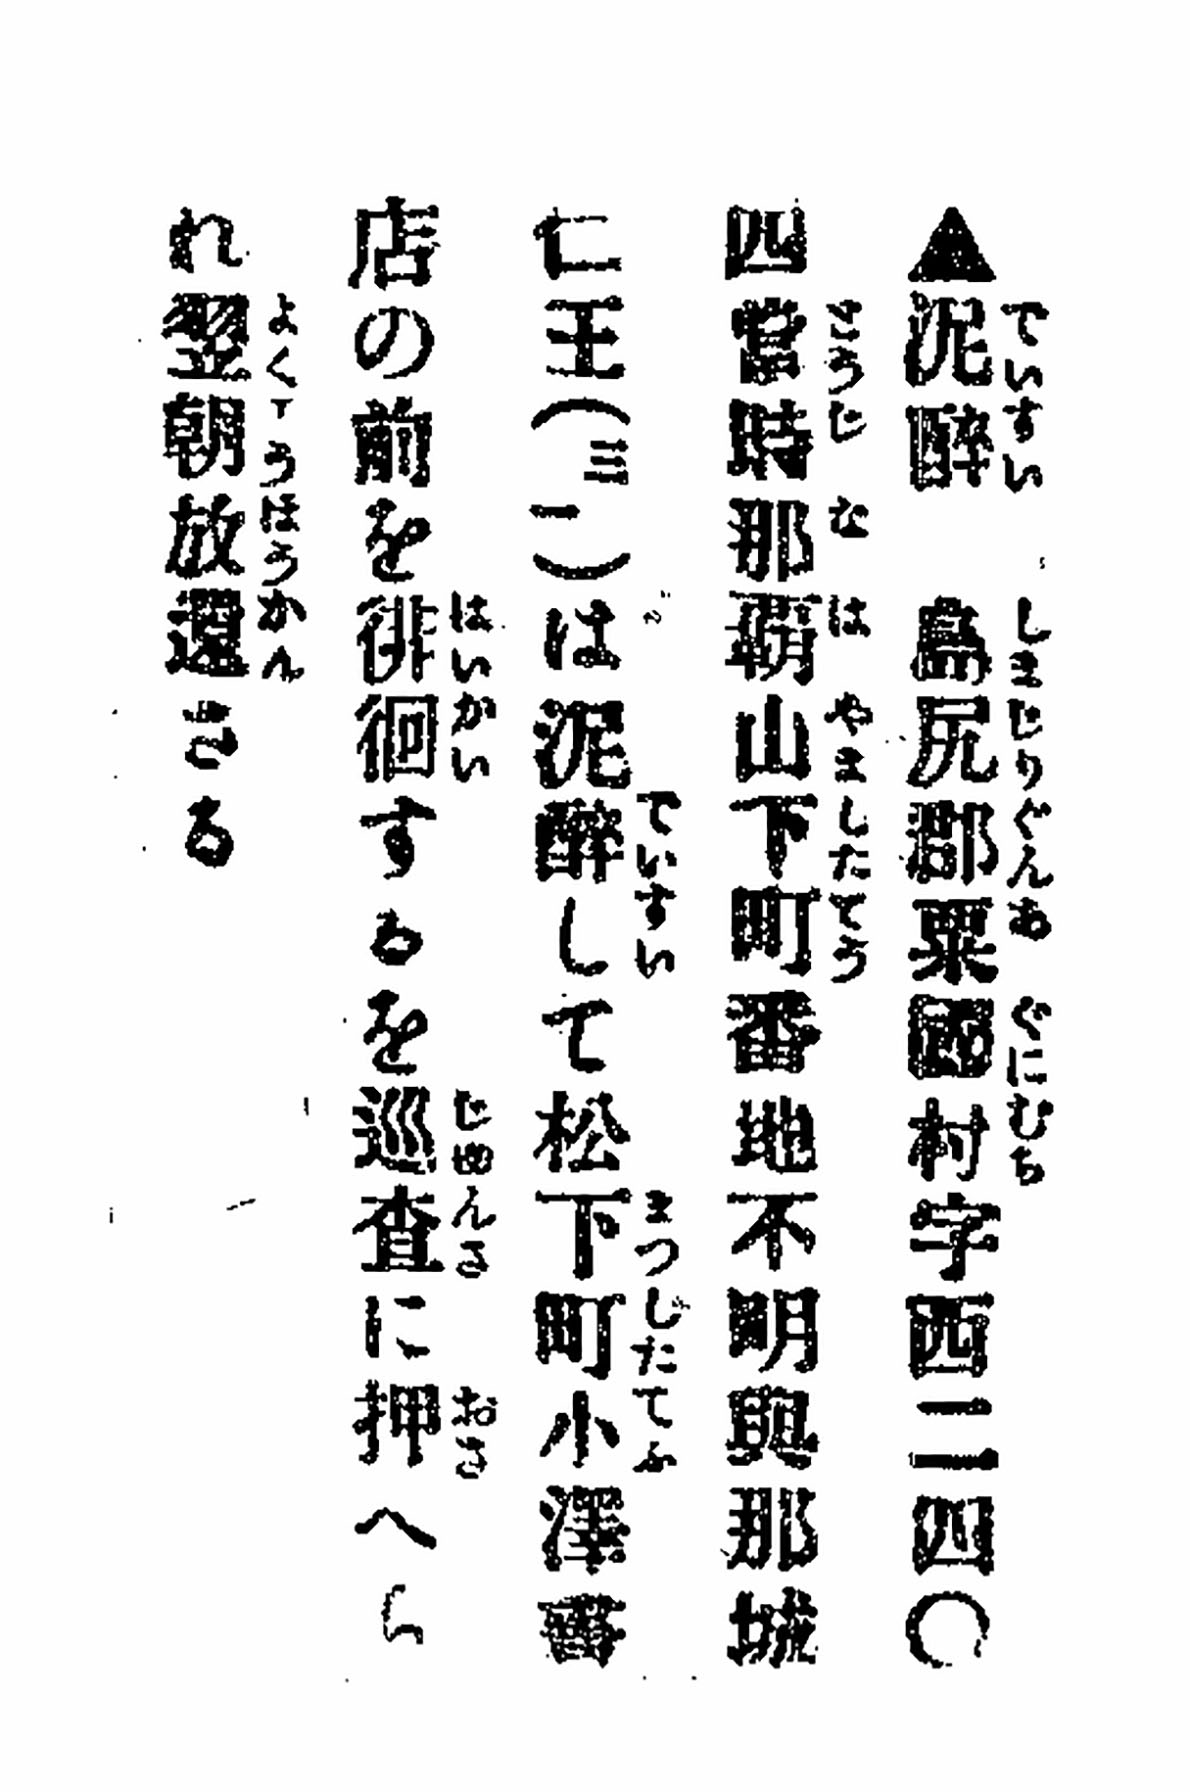 ▲泥醉 島尻郡粟國村字西二四〇
四當時那覇山下町番地不明與那城
仁王(三二)は泥醉して松下町小澤書
店の前を徘徊するを巡査に押へら
れ翌朝放還さる